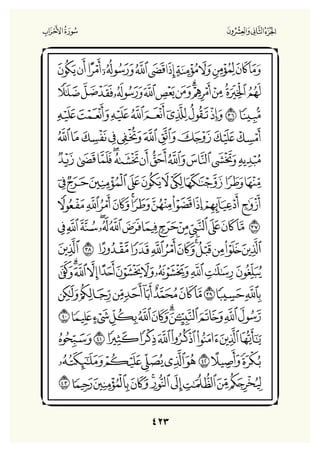 الجزء الثاني والعشرون سورة الأحزاب
وَمَا كَانَ لِمُؤْمِنٍ وَلَا مُؤْمِنَةٍ إِذَا قَضَى ٱللَّهُ وَرَسُولُهُۥٓ أَمْرًا أَن يَكُونَ
لَهُمُ ٱلْخِيَرَةُ مِنْ أَمْرِهِمْ ۗ وَمَن يَعْصِ ٱللَّهَ وَرَسُولَهُۥ فَقَدْ ضَلَّ ضَلَٰلًا
مُّبِينًا ٣٦ وَإِذْ تَقُولُ لِلَّذِىٓ أَنْعَمَ ٱللَّهُ عَلَيْهِ وَأَنْعَمْتَ عَلَيْهِ
أَمْسِكْ عَلَيْكَ زَوْجَكَ وَٱتَّقِ ٱللَّهَ وَتُخْفِى فِى نَفْسِكَ مَا ٱللَّهُ
مُبْدِيهِ وَتَخْشَى ٱلنَّاسَ وَٱللَّهُ أَحَقُّ أَن تَخْشَىٰهُ ۖ فَلَمَّا قَضَىٰ زَيْدٌ
مِّنْهَا وَطَرًا زَوَّجْنَٰكَهَا لِكَىْ لَا يَكُونَ عَلَى ٱلْمُؤْمِنِينَ حَرَجٌ فِىٓ
أَزْوَٰجِ أَدْعِيَآئِهِمْ إِذَا قَضَوْا۟ مِنْهُنَّ وَطَرًا ۚ وَكَانَ أَمْرُ ٱللَّهِ مَفْعُولًا
٣٧ مَّا كَانَ عَلَى ٱلنَّبِىِّ مِنْ حَرَجٍ فِيمَا فَرَضَ ٱللَّهُ لَهُۥ ۖ سُنَّةَ ٱللَّهِ فِى
ٱلَّذِينَ خَلَوْا۟ مِن قَبْلُ ۚ وَكَانَ أَمْرُ ٱللَّهِ قَدَرًا مَّقْدُورًا ٣٨ ٱلَّذِينَ
يُبَلِّغُونَ رِسَٰلَٰتِ ٱللَّهِ وَيَخْشَوْنَهُۥ وَلَا يَخْشَوْنَ أَحَدًا إِلَّا ٱللَّهَ ۗ وَكَفَىٰ
بِٱللَّهِ حَسِيبًا ٣٩ مَّا كَانَ مُحَمَّدٌ أَبَآ أَحَدٍ مِّن رِّجَالِكُمْ وَلَٰكِن
رَّسُولَ ٱللَّهِ وَخَاتَمَ ٱلنَّبِيِّۦنَ ۗ وَكَانَ ٱللَّهُ بِكُلِّ شَىْءٍ عَلِيمًا ٤٠
يَٰٓأَيُّهَا ٱلَّذِينَ ءَامَنُوا۟ ٱذْكُرُوا۟ ٱللَّهَ ذِكْرًا كَثِيرًا ٤١ وَسَبِّحُوهُ
بُكْرَةً وَأَصِيلًا ٤٢ هُوَ ٱلَّذِى يُصَلِّى عَلَيْكُمْ وَمَلَٰٓئِكَتُهُۥ
لِيُخْرِجَكُم مِّنَ ٱلظُّلُمَٰتِ إِلَى ٱلنُّورِ ۚ وَكَانَ بِٱلْمُؤْمِنِينَ رَحِيمًا ٤٣
٤٢٣